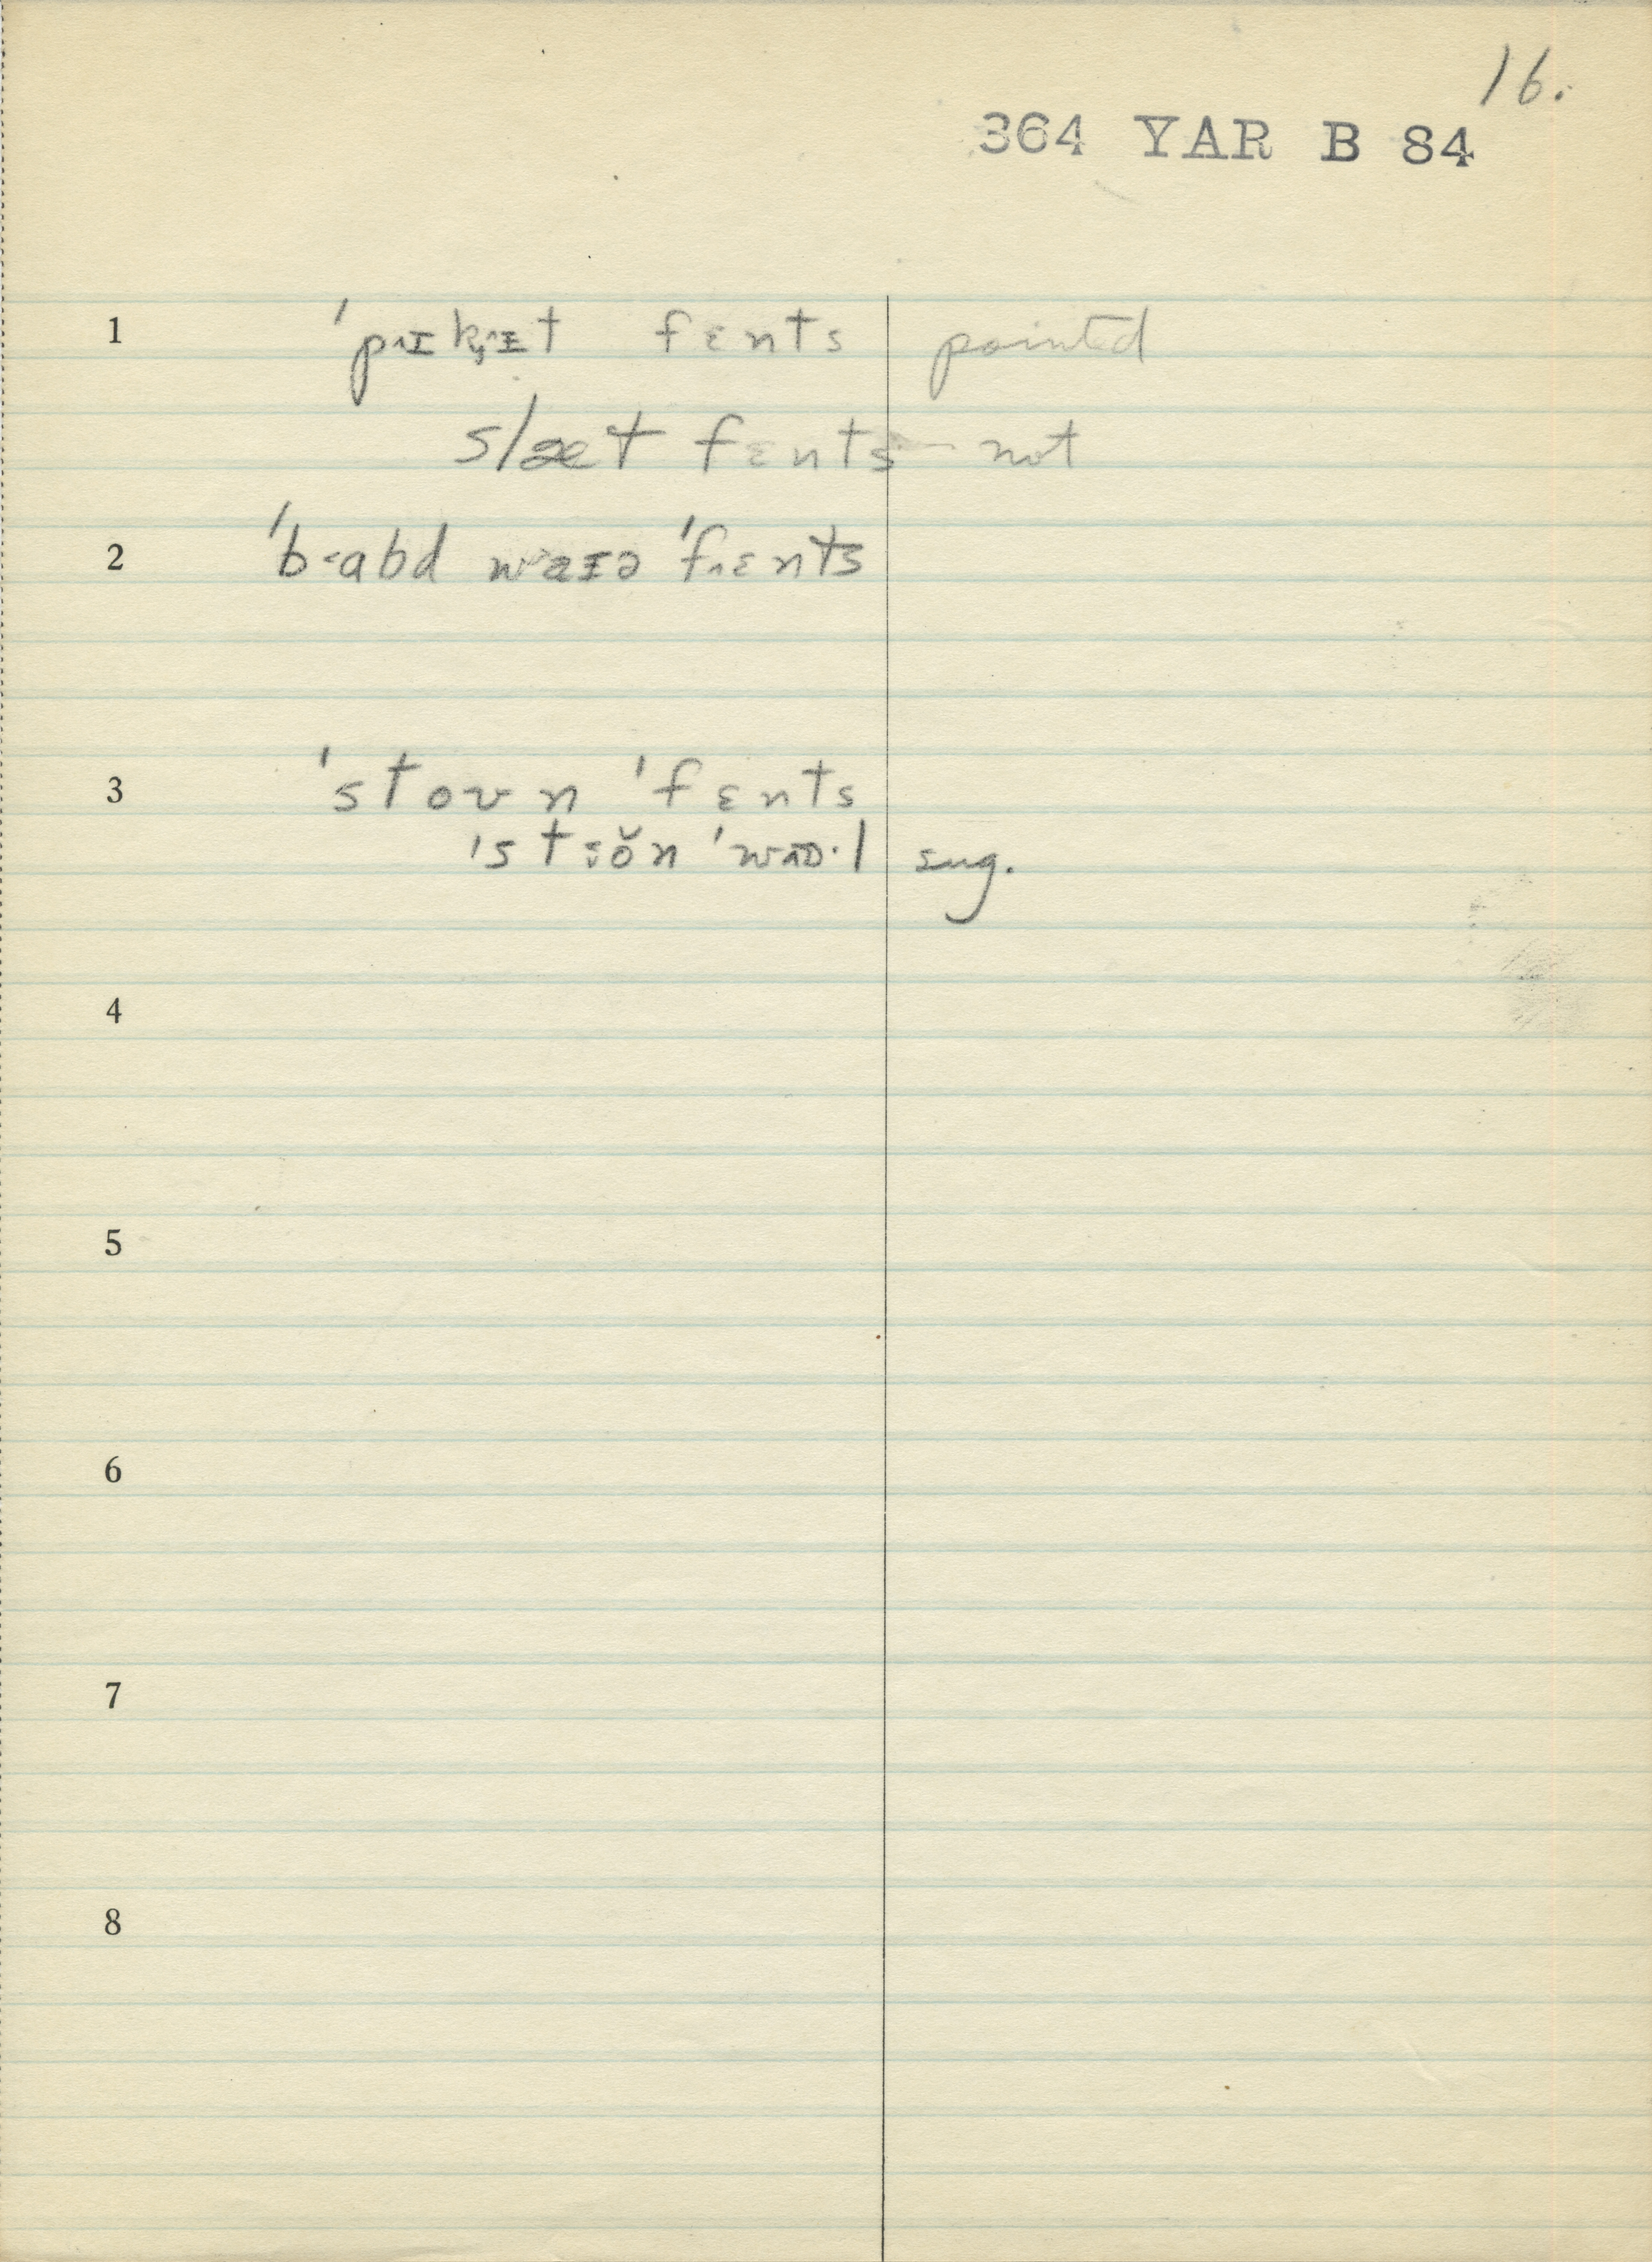 16.
364 YAR B 84
1 ˈpɪk̡ɪt fɛnts pointed
slæt fɛnts – not
2 ˈbabd waɪə ˈfɛnts
3 ˈstoʊn ˈfɛnts
ˈstɵ̆n ˈwɒ·l sug.
4
5
6
7
8